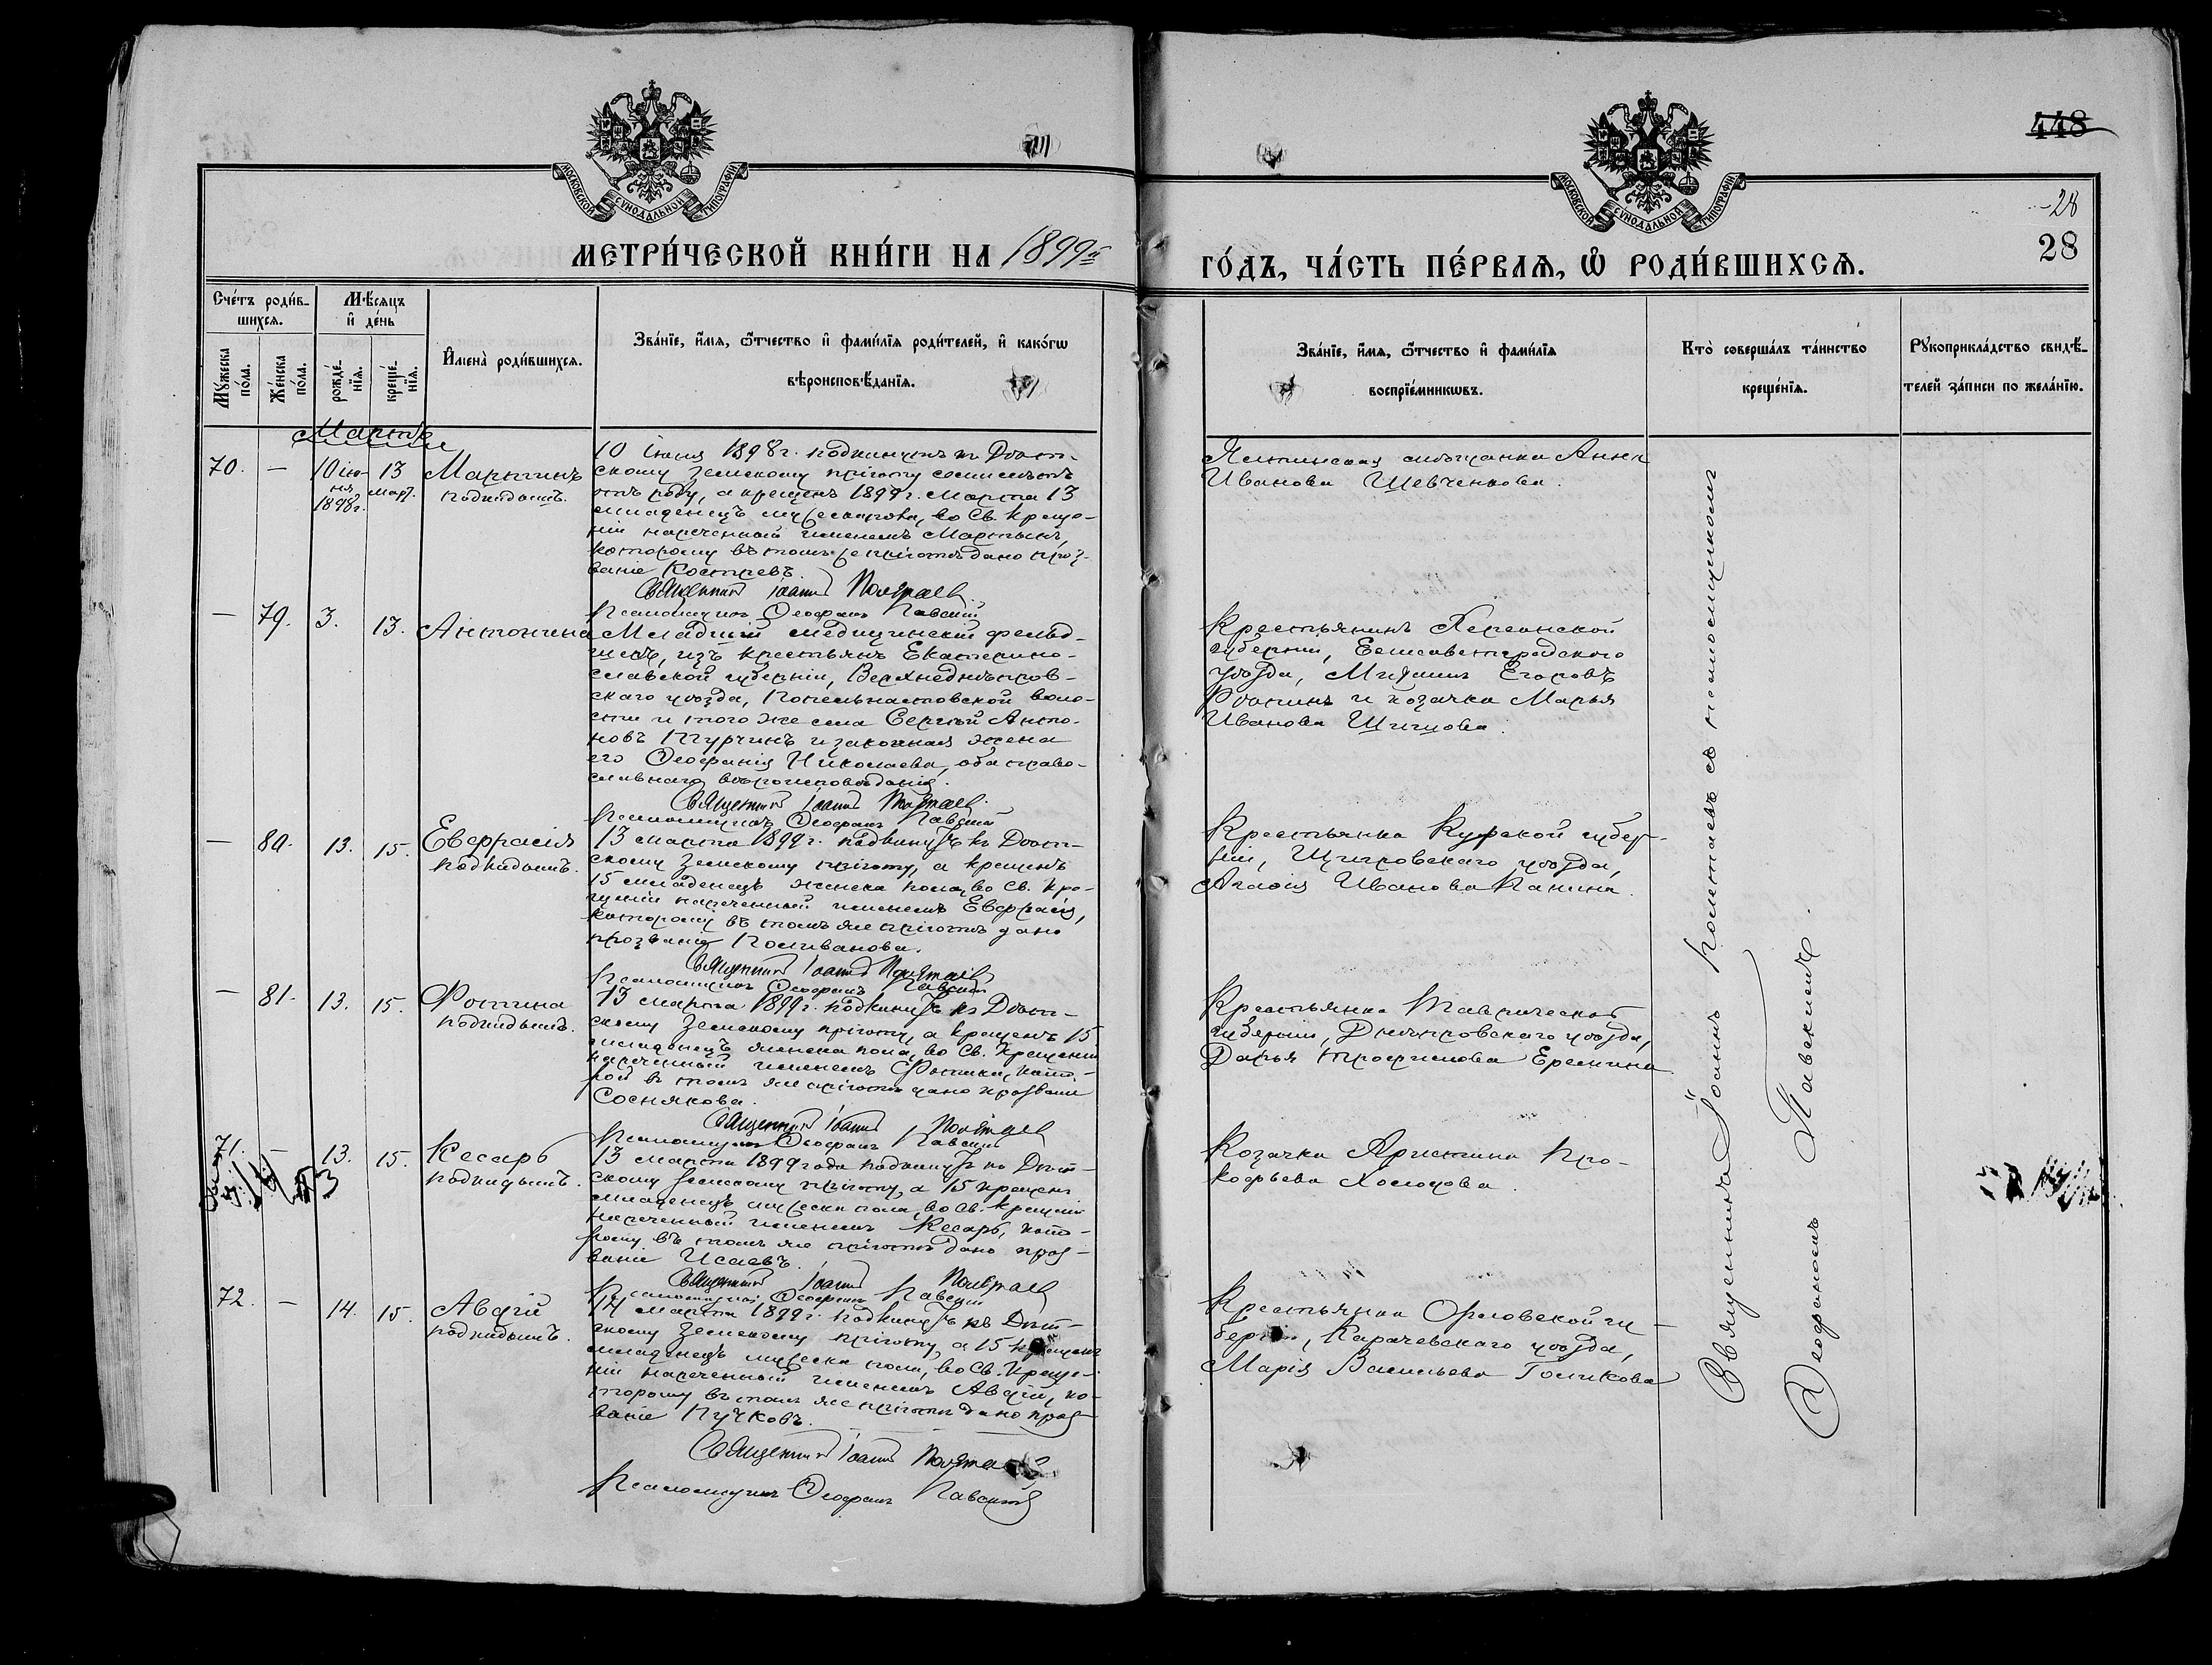 448
МОСКОВСКОЙ СѴНОДАЛЬНОЙ ТИПОГРАФІИ
МОСКОВСКОЙ СѴНОДАЛЬНОЙ ТИПОГРАФІИ
28
28
МЕТРИ́ЧЕСКОЙ КНИ́ГИ НА 1899й
ГО́ДЪ, ЧА́СТЬ ПЕ́РВАѦ, Ѡ҆ РОДИ́ВШИХСѦ.
Сче́тъ роди́в-
шихсѧ.
Мꙋ́жеска по́ла.
Же́нска по́ла.
Мѣ́сѧцъ
и҆ де́нь
рожде́-
нїѧ.
креще́-
нїѧ.
И҆мена̀ роди́вшихсѧ.
Зва́нїе, и҆́мѧ, ѻ҆́тчество и҆ фами́лїѧ роди́телей, и҆ како́гѡ
вѣроисповѣ́данїѧ.
Зва́нїе, и҆́мѧ, ѻ҆́тчество и҆ фами́лїѧ
воспрїе́мникѡвъ.
Кто̀ соверша́лъ та́инство
креще́нїѧ.
Рꙋкоприкла́дство свидѣ́-
телей за́писи по жела́нїю.
Мартъ
70.
—
10 ію-
ня
1898г.
13
март.
Мартинъ
подкидышъ.
10 іюня 1898 г. подкинутъ къ Дѣт-
скому Земскому пріюту
отъ роду, а крещенъ 1899 г. Марта 13
младенецъ мужеска пола, во Св. Креще-
ніи нареченный именемъ Мартинъ,
которому въ томъ же пріютѣ дано проз-
ваніе Костревъ.
Священникъ Іоаннъ
Псаломщикъ Ѳеофанъ Павскій
Иванова Шевченкова.
—
79.
3.
13.
Антонина
Младшій медицинскій фельд-
шеръ, изъ крестьянъ Екатерино-
славской губерніи, Верхнеднѣпров-
скаго уѣзда, Попельнастовской воло-
сти и того же села Сергѣй Анто-
новъ Турчинъ и законная жена
его Ѳеофанія Николаева, оба право-
славнаго вѣроисповѣданія.
Священникъ Іоаннъ
Псаломщикъ Ѳеофанъ Павскій
Крестьянинъ Херсонской
губерніи, Елисаветградскаго
уѣзда, Михаилъ Егоровъ
и козачка Марья
Иванова Шигцова.
—
80.
13.
15.
Евфрасія
подкидышъ.
13 марта 1899 г. подкинутъ къ Дѣт-
скому Земскому пріюту, а крещенъ
15 младенецъ женска пола, во Св. Кре-
щеніи нареченный именемъ Евфрасія,
которой въ томъ же пріютѣ дано
прозваніе Поливанова.
Священникъ Іоаннъ
Псаломщикъ Ѳеофанъ Павскій
Крестьянка Курской губер-
ніи, Щигровскаго уѣзда,
Агафія Иванова Панина.
—
81.
13.
15.
Фотина
подкидышъ.
13 марта 1899 г. подкинутъ къ Дѣт-
скому Земскому пріюту, а крещенъ 15
младенецъ женска пола, во Св. Крещеніи
нареченный именемъ Фотина, кото-
рой въ томъ же пріютѣ дано прозваніе
Соснякова.
Священникъ Іоаннъ
Псаломщикъ Ѳеофанъ Павскій
Крестьянка Таврической
губерніи, Днѣпровскаго уѣзда,
Дарья Трофимова Еремина
71.
—
13.
15.
Кесарь
подкидышъ.
13 марта 1899 года подкинутъ къ Дѣт-
скому Земскому пріюту, а 15 крещенъ
младенецъ мужеска пола, во Св. Крещеніи
нареченный именемъ Кесарь, кото-
рому въ томъ же пріютѣ дано проз-
ваніе Исаевъ.
Священникъ Іоаннъ
Псаломщикъ Ѳеофанъ Павскій
Козачка Христина Про-
кофьева
72.
—
14.
15.
Авдій
подкидышъ.
14 марта 1899 г. подкинутъ къ Дѣт-
скому Земскому пріюту, а 15 крещенъ
младенецъ мужеска пола, во Св. Креще-
ніи нареченный именемъ Авдій, ко-
торому въ томъ же пріютѣ дано проз-
ваніе Пучковъ.
Священникъ Іоаннъ
Псаломщикъ Ѳеофанъ Павскій
Крестьянка Орловской гу-
берніи, Карачевскаго уѣзда,
Марія Васильева Голикова
Священникъ Іоаннъ съ псаломщикомъ
Ѳеофаномъ Павскимъ.